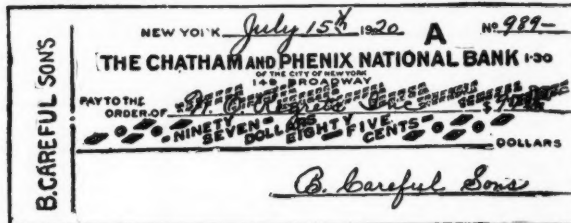 B. CAREFUL SONS
NEW YORK July 15th 1920 A No. 989-
THE CHATHAM AND PHENIX NATIONAL BANK 1-30
OF THE CITY OF NEW YORK
149 BROADWAY
PAY TO THE
ORDER OF $
NINETY SEVEN DOLLARS EIGHTY FIVE CENTS
DOLLARS
B. Careful Sons